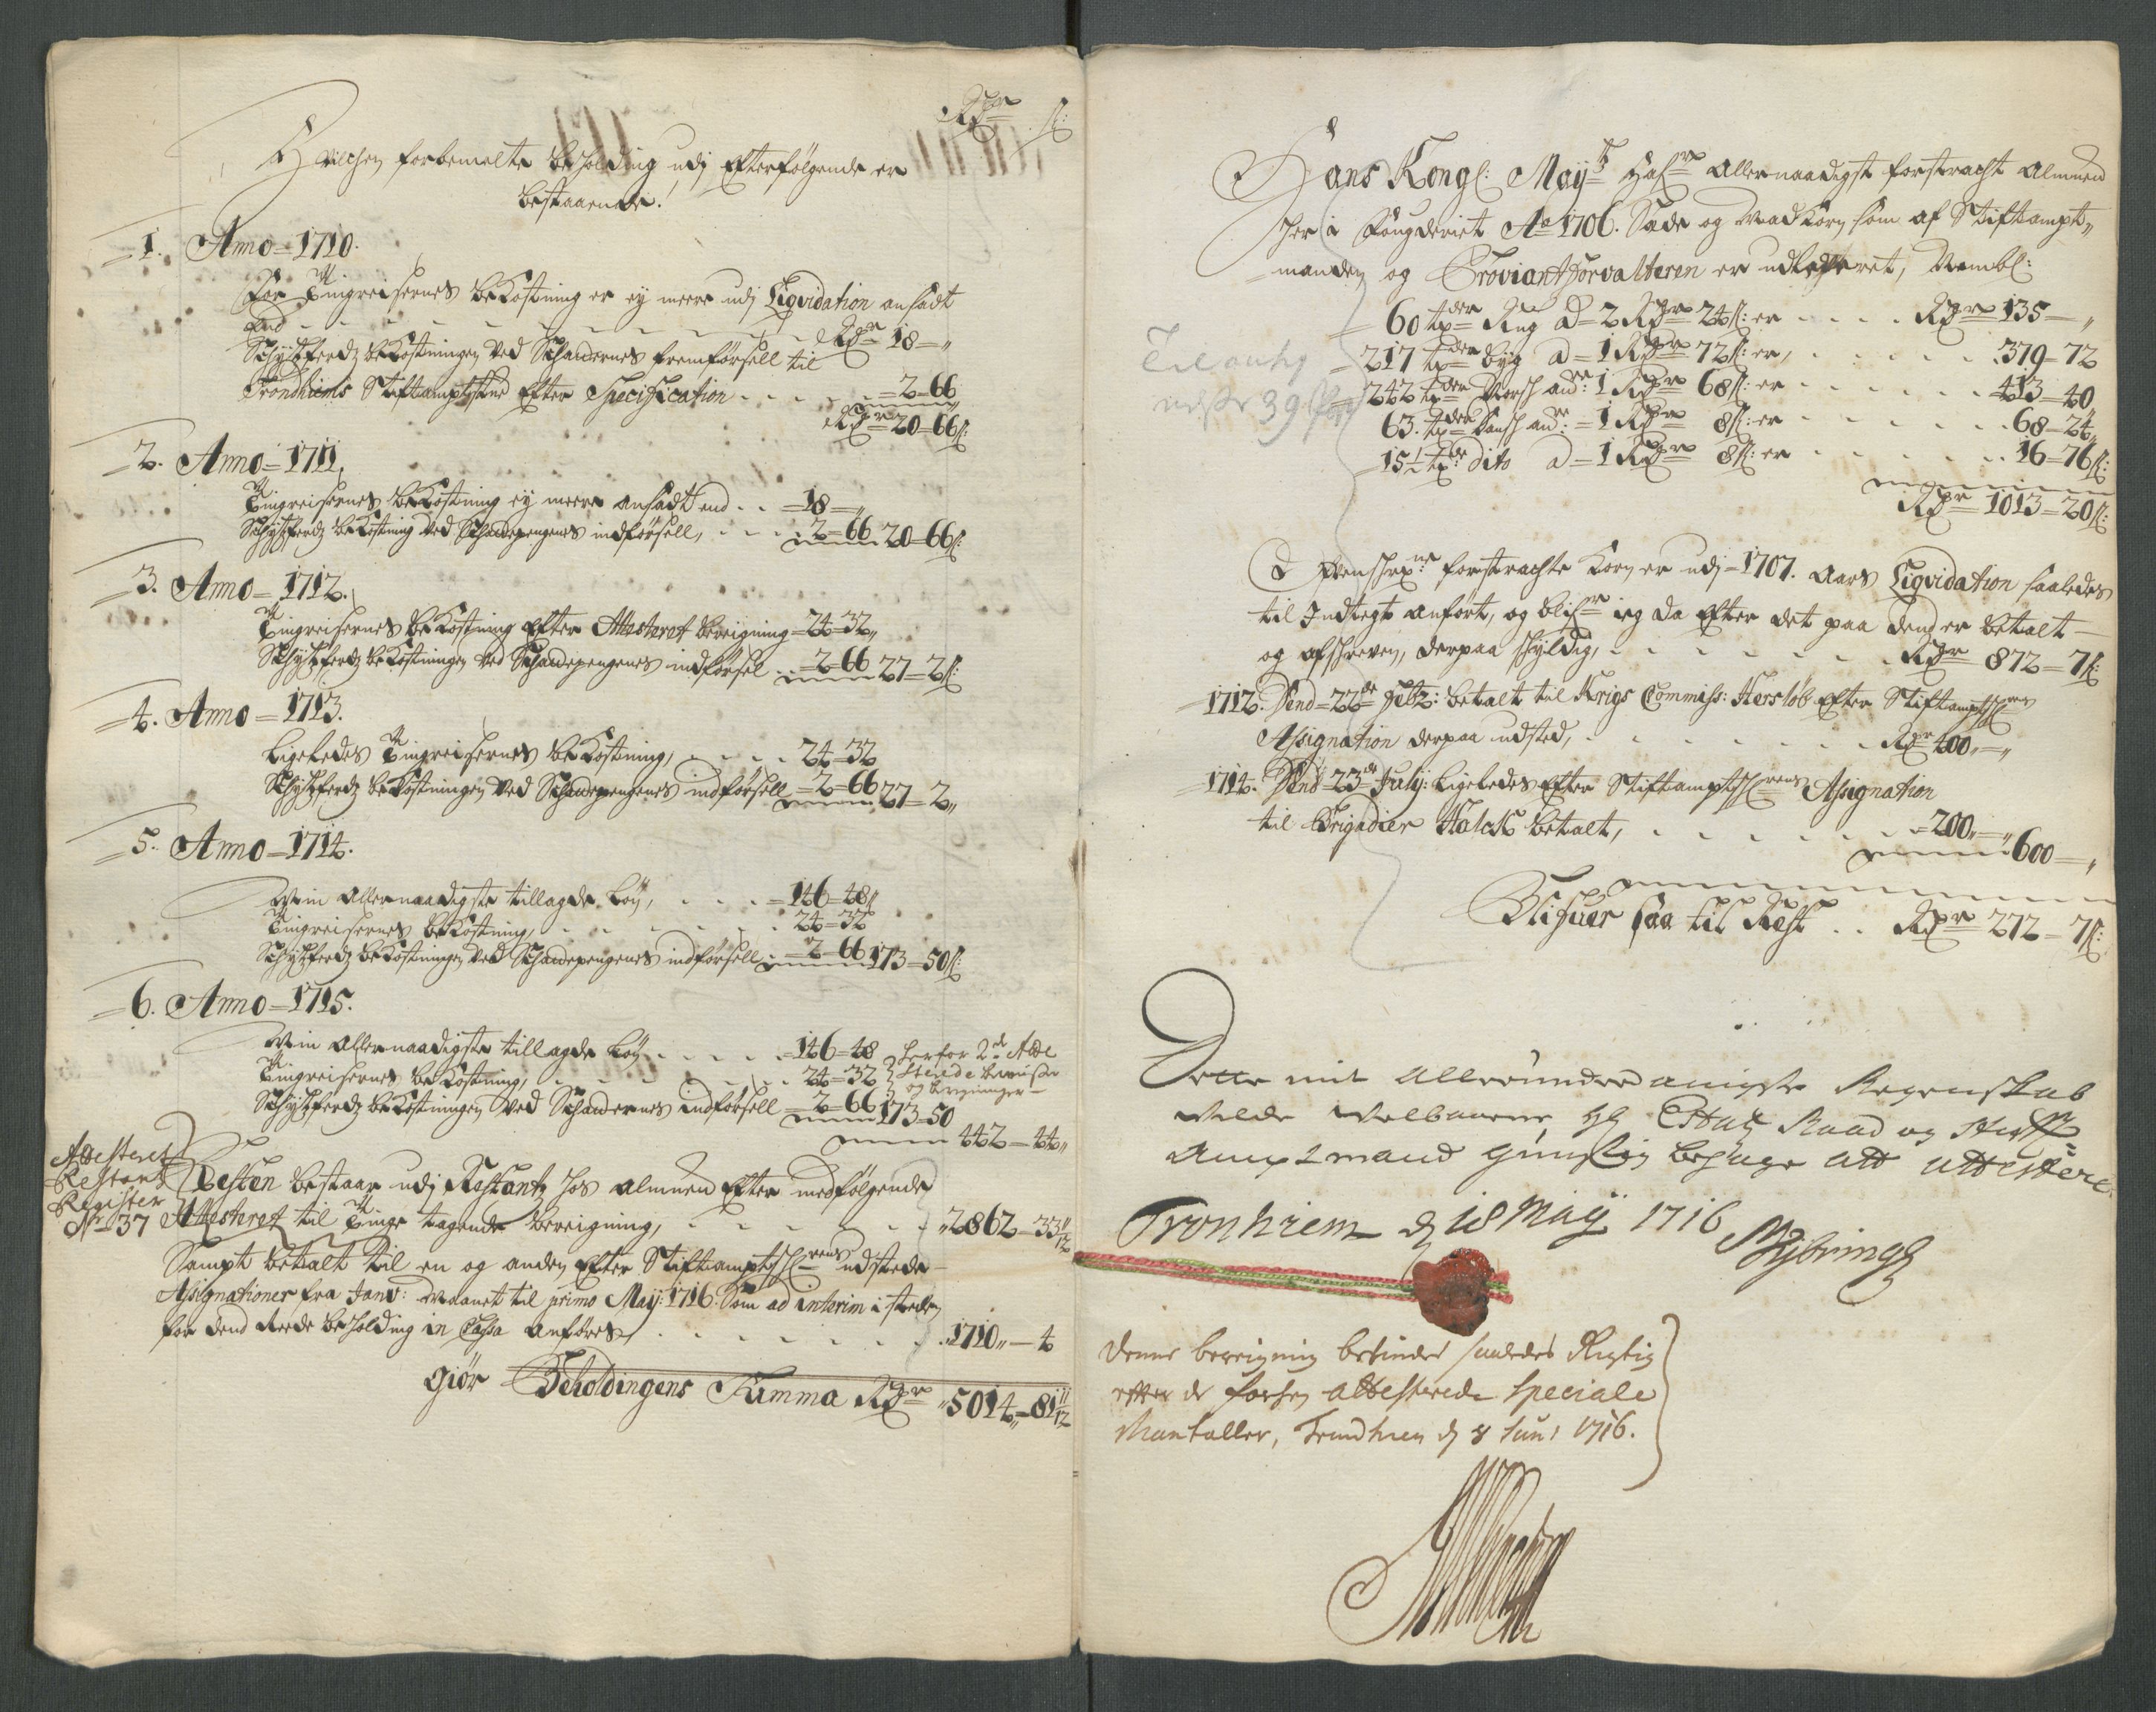 Rdr ß:
Hvilchen forbemelte beholding udj Efterfølgende er
bestaaende!
1. Anno 1710.
For Tingreisernes bekostning er ej meere udj Liqvidation ansadt
End - - - Rdr 18 = "
Schydtzferdtz bekostningen ved Schatternes fremførsell til
Trondhiems Stiftamptstue Efter Specification - - - 2 = 66
Rdr 20 = 66 ß:
2. Anno = 1711,
Tingreisernes bekostning ej meere ansadt end . . = 18 = "
Schydtzferdtz bekostning ved Schattepengenes indførsell, - - - 2 = 66 20 = 66 ß:
3. Anno = 1712.
Tingreisernes bekostning Efter Attesteret beregning = 24 = 32 "
Schydtzferdtz bekostningen ved Schattepengenes indførsel . . = 2 = 66 27 = 2 ß:
4. Anno = 1713.
Ligeledes Tingreisernes bekostning, - - - 24 = 32
Schydtzferdtz bekostningen ved Schattepengenes indførsell = 2 = 66 27 = 2 "
5. Anno = 1714.
Min allernaadigste tillagde Løn, - - - = 146 = 48 ß
Tingreisernes bekostning, - - - 24 = 32
Schydtzferdtz bekostningen ved Schattepengenes indførsell - = 2 = 66 173 = 50 ß:
6. Anno = 1715.
Min allernaadigste tillagde Løn - - - = 146 = 48
Tingreisernes bekostning, - - - 24 = 32
Schydtzferdtz bekostningen ved Schatternes indførsell = 2 = 66 173 = 50
herfor 2de Atte
sterede beviser
og beregninger
442 = 44 "
Attesteret
Restantz
Register
No 37
Resten bestaar udj Restantz hos almuen Efter medfølgende
Attesteret til Tinge tagende beregning, - - - 2862 = 33 11/12
Sampt betalt til en og anden Efter Stiftamptschrifverens udstede
Assignationer fra Janv: Maanet til primo Maij: 1716. Som ad interim i steden
for dend Reede beholding in Cassa anføres, - - - 1710 " = 4
Giør Beholdingens Summa Rdr " 5014 " = 81 11/12
Hans Kongl: Mayts hafr Allernaadigst forstracht Almuen
her i Fougderiet Ao 1706. Sæde og Madkorn som af Stiftampt-
manden og Proviantforvalteren er udleveret, Nembl:
60 tdr Rug a = 2 Rdr 24 ß: er - - - Rdr 135 = "
217 tdr byg a = 1 Rdr 72 ß: er, - - - 379 = 72
242 tdr Norsch andr: 1 Rdr 68 ß: er - - - 413 = 40
63. tdr Dansch andr: = 1 Rdr 8 ß: er - - - 68 = 24
15 1/2 tdr dito a = 1 Rdr 8 ß: er - - - 16 = 76 ß:
Rdr 1013 = 20 ß:
forstrachte Korn er udj = 1707. Aars Liqvidation saaledes
til Indtegt anført, og blifr ieg da Efter det paa dend er betalt
og afschreven, derpaa schyldig, - - - Rdr 872 = 7 ß
1712. Dend = 22de betalt til Krigs Commiss: Hersløb Efter Stiftamptschr
Assignation derpaa udsted, - - - Rdr 400 " = "
1714. Dend = 23de July: Ligeledes Efter Stiftamptschrifverens Assignation
til Brigadier betalt, - - - = 200 " = "
600 = "
Blifver saa til Rest . . Rdr 272 = 7 ß:
Dette mit allerunderdanigste Regenskab
vilde Velbaarne Hr Etatz Raad og Stifft
Amptmand gunstig behage att attestere
Tronhiem d 18 Maij 1716
denne beregning befindes saaledes Rigtig
efter de forhen attesterede speciale
Mantaller, Trundhiem d 8 Juni 1716.